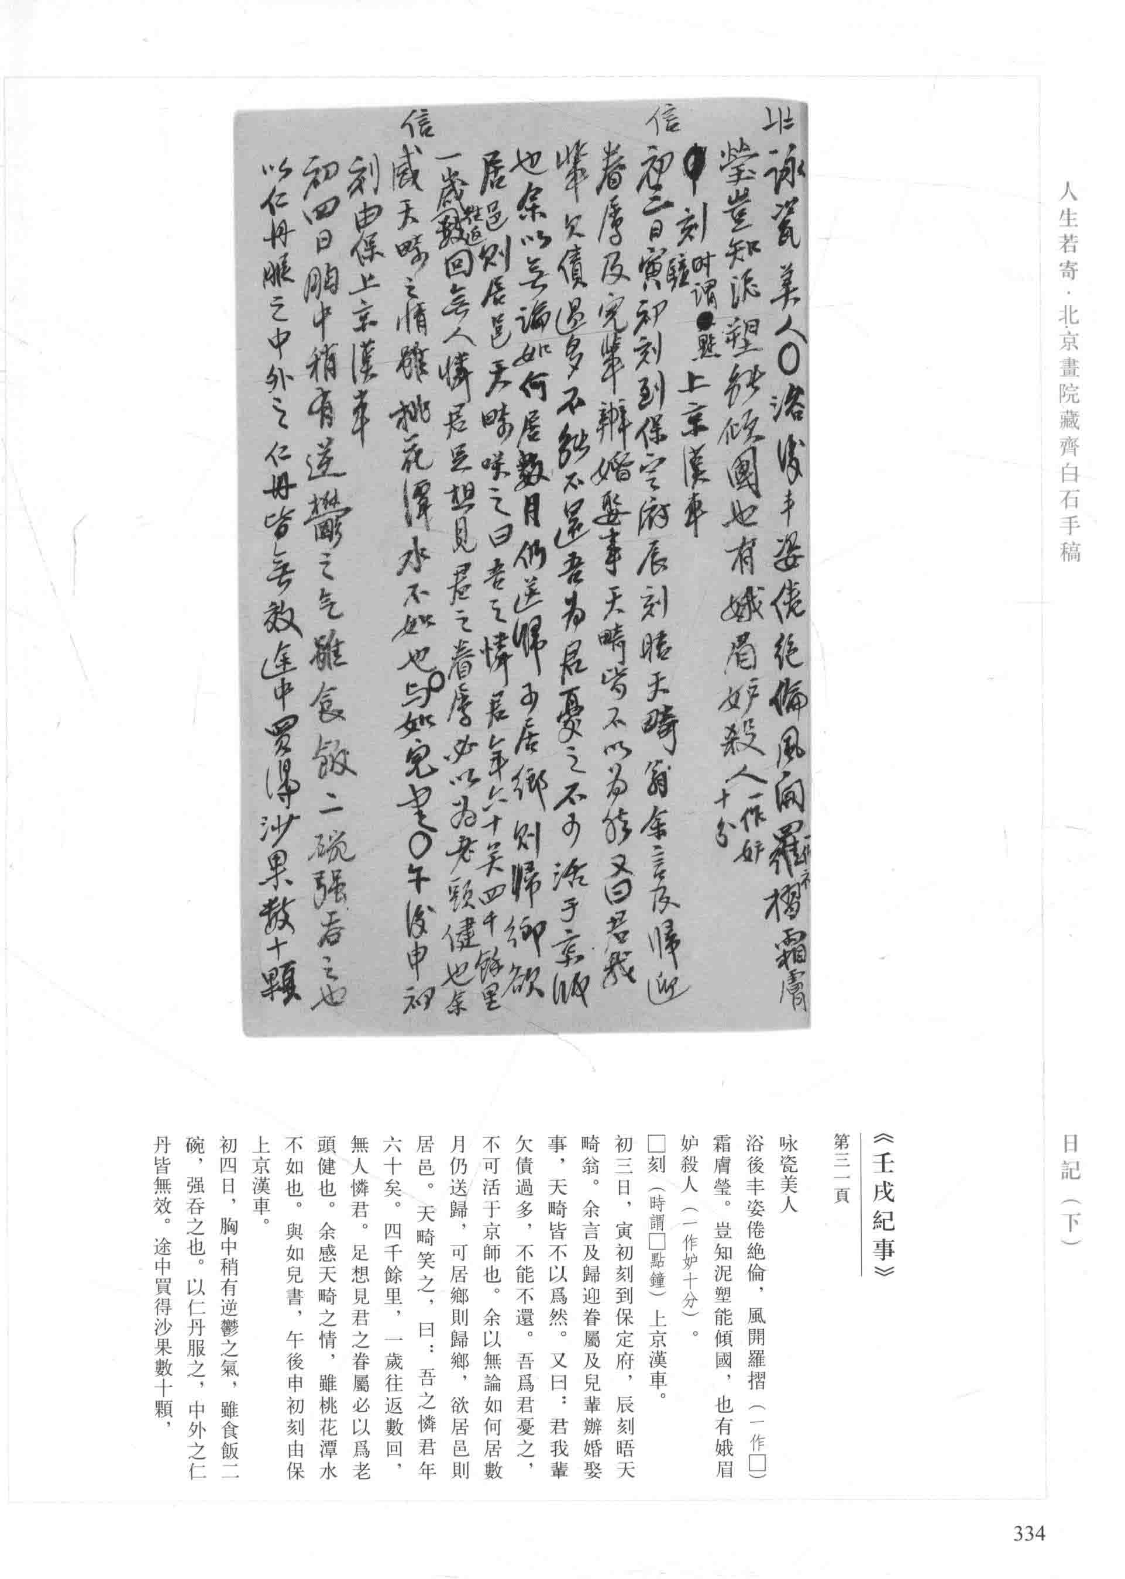 人生若寄·北京畫院藏齊白石手稿
日記（下）
詠瓷美人〇浴後丰姿倦絕倫風開羅摺霜膚
瑩豈知泥塑能傾國也有娥眉妒殺人一作妒
十分
刻時謂點鐘上京漢車
信
初三日寅初刻到保定府辰刻晤天畸翁余言及歸迎
眷屬及兒輩辦婚娶事天畸皆不以為然又曰君我
輩欠債過多不能不還吾為君憂之不可活于京師
也余以無論如何居數月仍送歸可居鄉則歸鄉欲
居邑則居邑天畸笑之曰吾之憐君年六十矣四千餘里
一歲往返數回無人憐君足想見君之眷屬必以為老頭健也余
信
感天畸之情雖桃花潭水不如也〇与如兒書〇午後申初
刻由保上京漢車
初四日胸中稍有逆鬱之气雖食飯二碗强吞之也
以仁丹服之中外之仁丹皆無效途中買得沙果數十顆
《壬戌紀事》
第三一頁
咏瓷美人
浴後丰姿倦絶倫，風開羅摺（一作□）
霜膚瑩。豈知泥塑能傾國，也有娥眉
妒殺人（一作妒十分）。
□刻（時謂□點鐘）上京漢車。
初三日，寅初刻到保定府，辰刻晤天
畸翁。余言及歸迎眷屬及兒輩辦婚娶
事，天畸皆不以爲然。又曰：君我輩
欠債過多，不能不還。吾爲君憂之，
不可活于京師也。余以無論如何居數
月仍送歸，可居鄉則歸鄉，欲居邑則
居邑。天畸笑之，曰：吾之憐君年
六十矣。四千餘里，一歲往返數回，
無人憐君。足想見君之眷屬必以爲老
頭健也。余感天畸之情，雖桃花潭水
不如也。與如兒書，午後申初刻由保
上京漢車。
初四日，胸中稍有逆鬱之氣，雖食飯二
碗，强吞之也。以仁丹服之，中外之仁
丹皆無效。途中買得沙果數十顆，
334